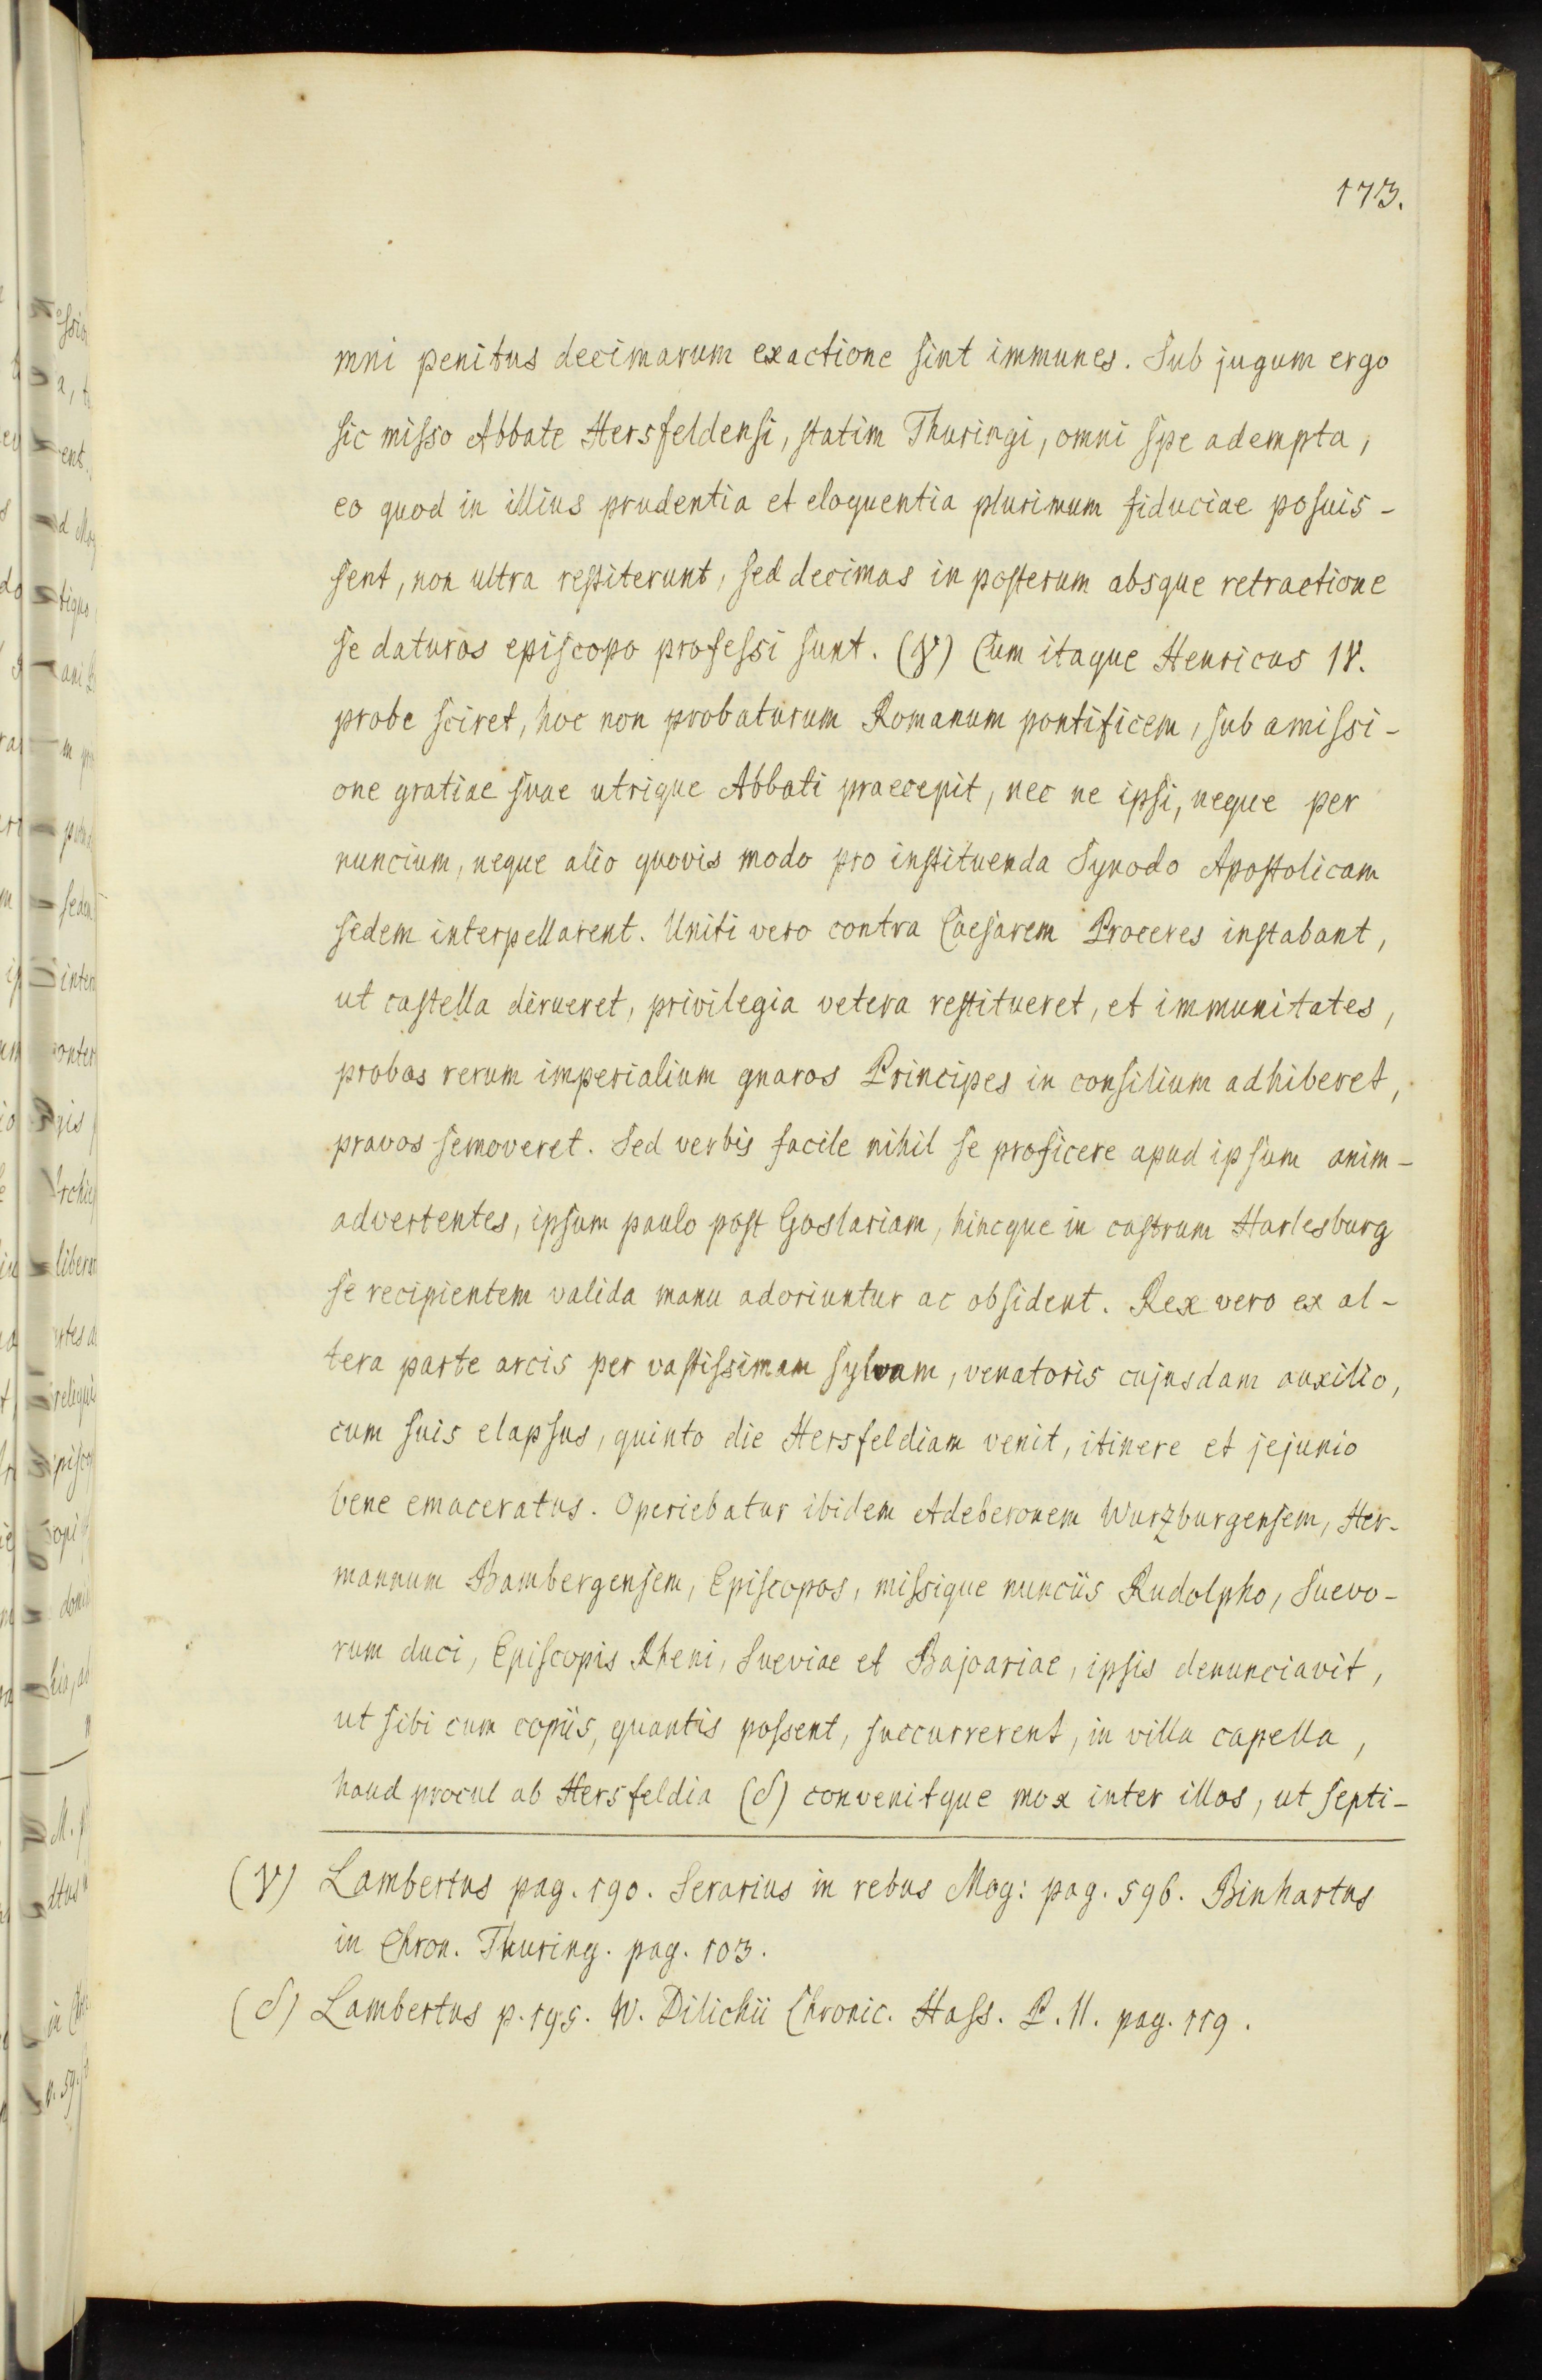 173.
mni penitus decimarum exactione sint immunes. Sub jugum ergo
sic misso Abbate Hersfeldensi, statim Thuringi, omni spe adempta,
eo quod in illius prudentia et eloquentia plurimum fiduciae posuis-
sent, non ultra restiterunt, sed decimas in posterum absque retractione
se daturos episcopo professi sunt. (γ) Cum itaque Henricus IV.
probe sciret, hoc non probaturum Romanum pontificem, sub amissi-
one gratiae suae utrique Abbati praecepit, nec ne ipsi, neque per
nuncium, neque alio quovis modo pro instituenda Synodo Apostolicam
sedem interpellarent. Uniti vero contra Caesarem Proceres instabant,
ut castella dirueret, privilegia vetera restitueret, et immunitates,
probos rerum imperialium gnaros Principes in consilium adhiberet,
pravos semoveret. Sed verbis facile nihil se proficere apud ipsum anim-
advertentes, ipsum paulo post Goslariam, hincque in castrum Harlesburg
se recipientem valida manu adoriuntur ac obsident. Rex vero ex al-
tera parte arcis per vastissimam sylvam, venatoris cujusdam auxilio,
cum suis elapsus, quinto die Hersfeldiam venit, itinere et jejunio
bene emaceratus. Operiebatur ibidem Adeberonem Wurzburgensem, Her-
mannum Bambergensem, Episcopos, missique nunciis Rudolpho, Suevo-
rum duci, Episcopis Rheni, Sueviae et Bajoariae, ipsis denunciavit,
ut sibi cum copiis, quantis possent, succurrerent, in villa capella,
haud procul ab Hersfeldia (δ) convenitque mox inter illos, ut septi-
(γ) Lambertus pag. 190. Serarius in rebus Mog: pag. 596. Binhartus
in Chron. Thuring. pag. 103.
(δ) Lambertus p. 195. W. Dilichii Chronic. Hass. P. II. pag. 119.